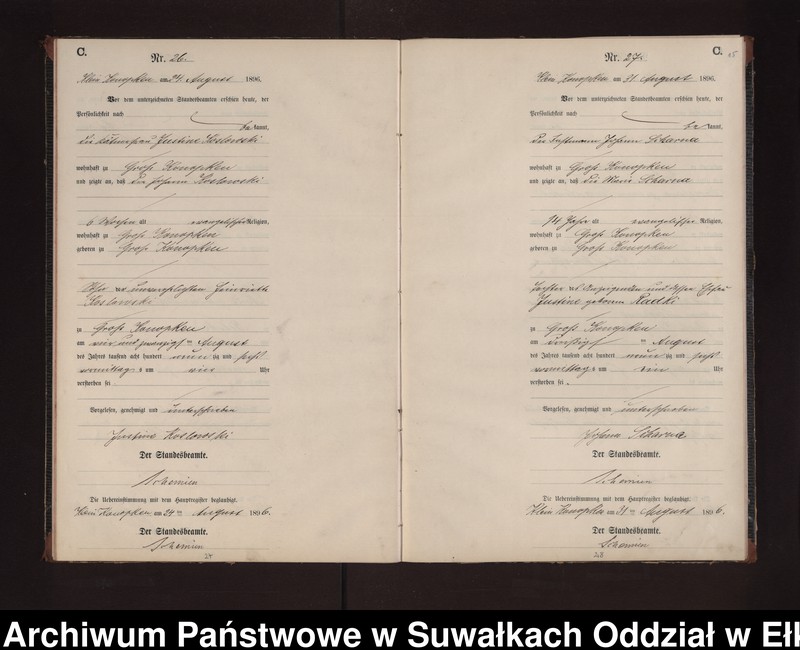 C.
Nr. 26.
Klein Konopken am 24. August 1896.
Vor dem unterzeichneten Standesbeamten erschien heute, der
Persönlichkeit nach
be kannt,
die Justine Koslowski
wohnhaft zu Groß Konopken
und zeigte an, daß Koslowski
6 Wochen alt evangelischer Religion,
wohnhaft zu Groß Konopken
geboren zu Groß Konopken
Sohn der unverehelichten Heinriette
Koslowski
zu Groß Konopken
am vier und zwanzigsten August
des Jahres tausend acht hundert neun zig und sechs
vormittags um vier Uhr
verstorben sei
Vorgelesen, genehmigt und unterschrieben
Justine Koslowski
Der Standesbeamte.
Die Uebereinstimmung mit dem Hauptregister beglaubigt.
Klein Konopken am 24ten August 1896.
Der Standesbeamte.
C.
Nr. 27.
Klein Konopken am 31. August 1896.
Vor dem unterzeichneten Standesbeamten erschien heute, der
Persönlichkeit nach
be kannt,
der Johann
wohnhaft zu Groß Konopken
und zeigte an, daß die Marie
14 Jahr alt evangelischer Religion,
wohnhaft zu Groß Konopken
geboren zu Groß Konopken
Tochter des Anzeigenden und dessen Ehefrau
Justine geborene Radki
zu Groß Konopken
am August
des Jahres tausend acht hundert neun zig und sechs
vormittags um Uhr
verstorben sei.
Vorgelesen, genehmigt und unterschrieben
Johann
Der Standesbeamte.
Die Uebereinstimmung mit dem Hauptregister beglaubigt.
Klein Konopken am 31ten August 1896.
Der Standesbeamte.
Archiwum Państwowe w Suwałkach Oddział w Ełk